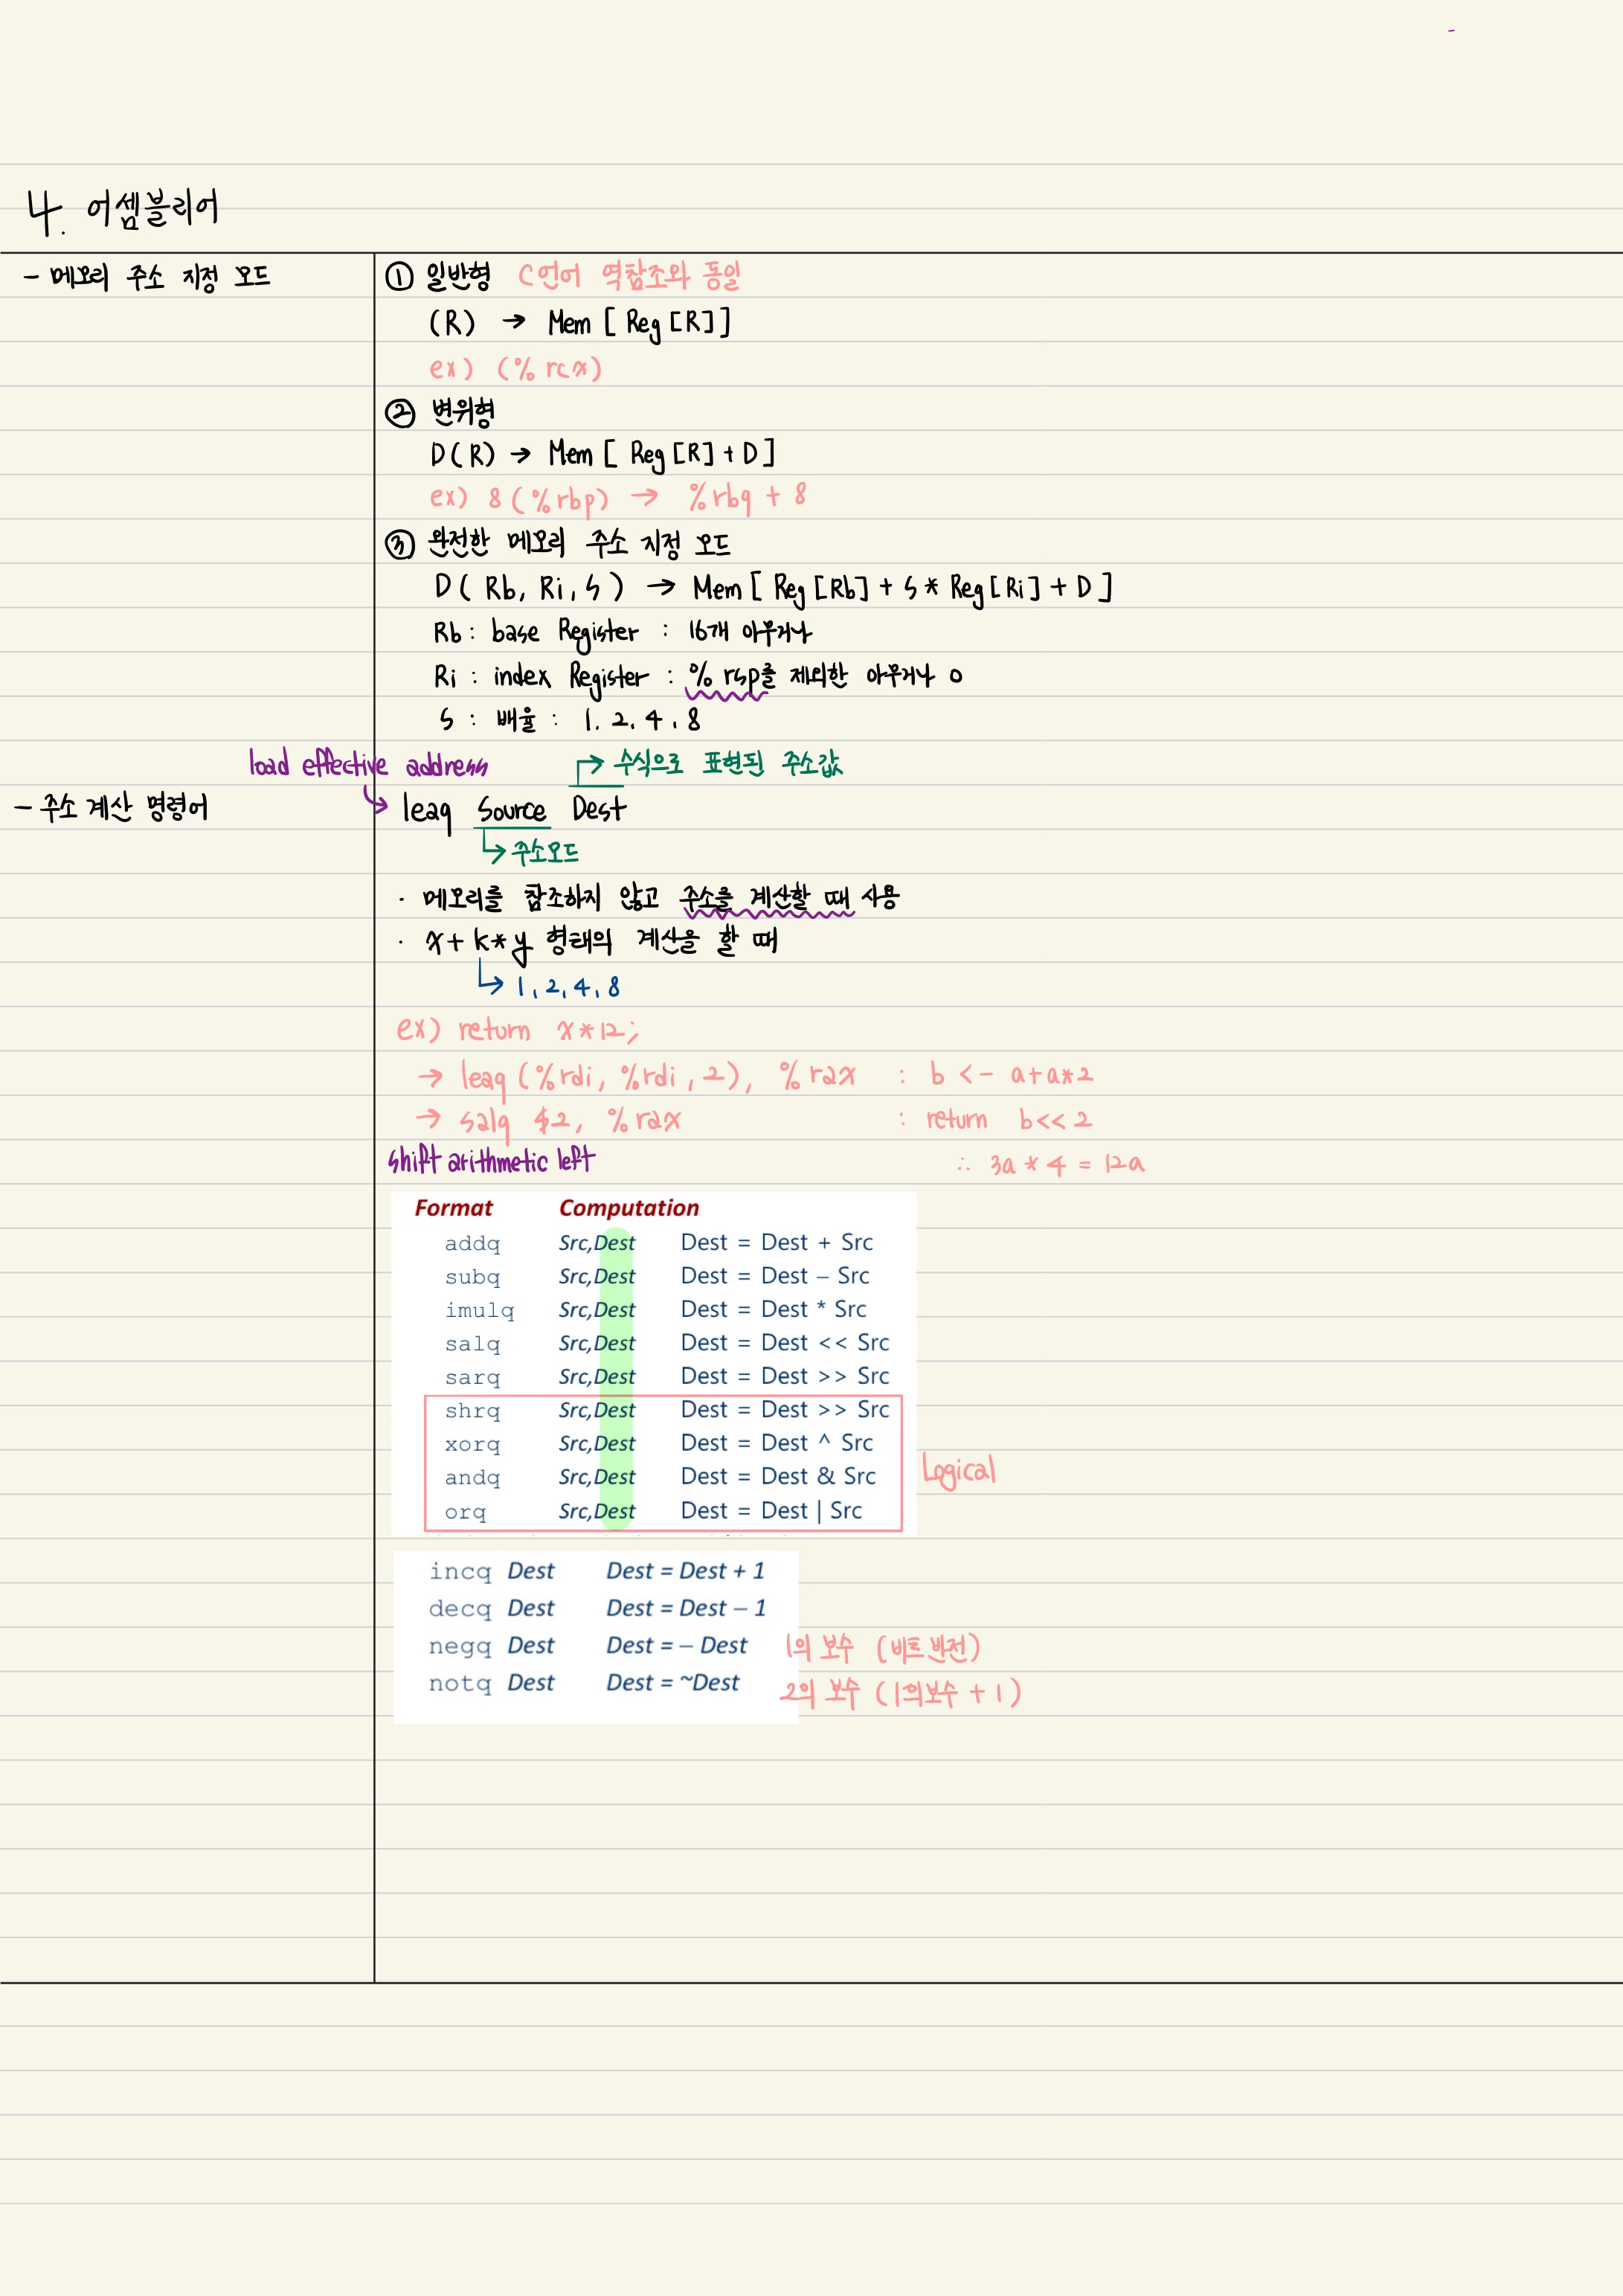 4. 어셈블리어
- 메모리 주소 지정 모드
① 일반형 C언어 역참조와 동일
(R) → Mem [ Reg [R] ]
ex) (% rcx)
② 변위형
D(R) → Mem [ Reg [R] + D ]
ex) 8 (%rbp) → %rbq + 8
③ 완전한 메모리 주소 지정 모드
D ( Rb, Ri, S ) → Mem [ Reg [Rb] + S * Reg [Ri] + D ]
Rb : base Register : 16개 아무거나
Ri : index Register : % rsp를 제외한 아무거나 0
S : 배율 : 1, 2, 4, 8
load effective address
→ 수식으로 표현된 주소값
- 주소 계산 명령어
leaq Source Dest
→ 주소모드
· 메모리를 참조하지 않고 주소를 계산할 때 사용
· x + k * y 형태의 계산을 할 때
→ 1, 2, 4, 8
ex) return x * 12;
→ leaq (%rdi, %rdi, 2), %rax : b <- a+a*2
→ salq $2, %rax : return b<<2
shift arithmetic left ∴ 3a * 4 = 12a
Format Computation
addq Src,Dest Dest = Dest + Src
subq Src,Dest Dest = Dest – Src
imulq Src,Dest Dest = Dest * Src
salq Src,Dest Dest = Dest << Src
sarq Src,Dest Dest = Dest >> Src
shrq Src,Dest Dest = Dest >> Src
xorq Src,Dest Dest = Dest ^ Src
andq Src,Dest Dest = Dest & Src
orq Src,Dest Dest = Dest | Src
Logical
incq Dest Dest = Dest + 1
decq Dest Dest = Dest – 1
negq Dest Dest = – Dest 1의 보수 (비트 반전)
notq Dest Dest = ~Dest 2의 보수 (1의보수 + 1)